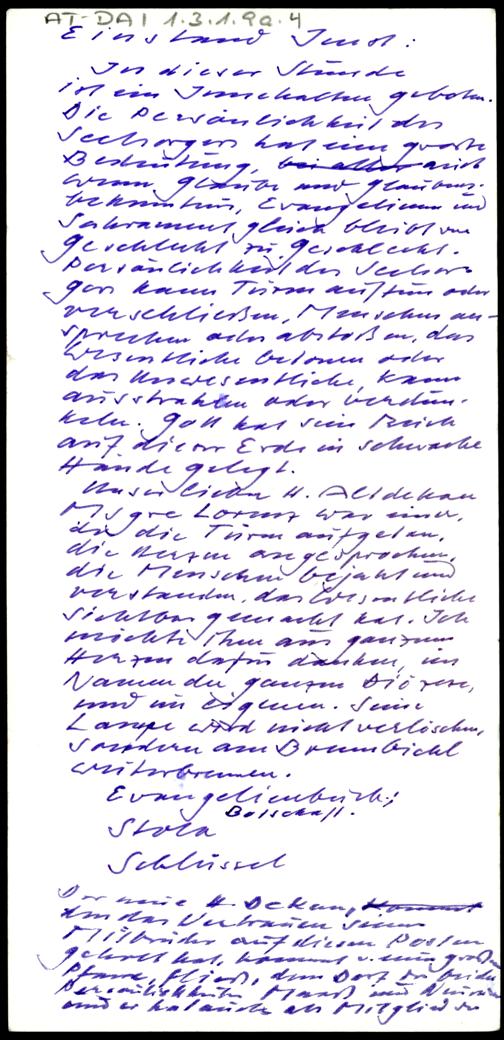 AT-DAI 1.3.1.9a.4
Einstand Imst:
In dieser Stunde
ist ein Innehalten geboten.
Die Persönlichkeit des
Seelsorgers hat eine grosse
Bedeutung, bei aller auch
wenn Glaube und Glaubens-
bekenntnis, Evangelium und
Sakrament gleich bleibt von
Geschlecht zu Geschlecht.
Persönlichkeit des Seelsor-
gers kann Türen auftun oder
verschließen, Menschen an-
sprechen oder abstoßen, das
Wesentliche betonen oder
das Unwesentliche, kann
ausstrahlen oder verdun-
keln. Gott hat sein Reich
auf dieser Erde in schwache
Hände gelegt.
Unser lieber H. Altdekan
Msgre Lorenz war einer,
der die Türen aufgetan,
die Herzen angesprochen,
die Menschen bejaht und
verstanden, das Wesentliche
sichtbar gemacht hat. Ich
möchte Ihm aus ganzem
Herzen dafür danken, im
Namen der ganzen Diözese,
und im eigenen. Seine
Lampe wird nicht verlöschen,
sondern am Brennbichl
weiterbrennen.
Evangelienbuch;
Botschaft.
Stola
Schlüssel
Der neue H. Dekan, kommt
den das Vertrauen seiner
Mitbrüder auf diesen Posten
geholt hat, kommt v. einer großen
Pfarre, Fließ, dem Dorf der beiden
Persönlichkeiten Maaß und
und er hat auch als Mitglied der